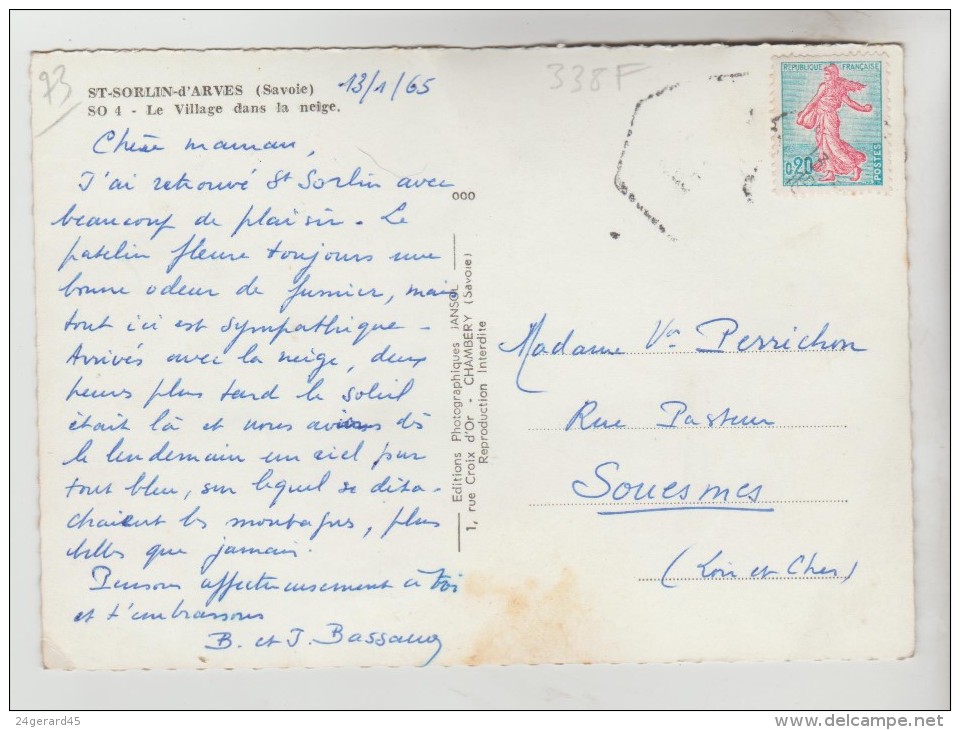 73
ST-SORLIN-d'ARVES (Savoie)
SO 4 - Le Village dans la neige.
13/1/65
338F
REPUBLIQUE FRANÇAISE
0,20
POSTES
Chère maman,
J'ai retrouvé St Sorlin avec
beaucoup de plaisir. Le
patelin fleure toujours une
bonne odeur de fumier, mais
tout ici est sympathique.
Arrivés avec la neige, deux
heures plus tard le soleil
était là et nous avions dès
le lendemain un ciel pur
tout bleu, sur lequel se déta-
chaient les montagnes, plus
belles que jamais.
Pensons affectueusement à toi
et t'embrassons
B. et J.
000
Editions Photographiques JANSOL
1, rue Croix d'Or - CHAMBÉRY (Savoie)
Reproduction Interdite
Madame Ve Perrichon
Rue Pasteur
Souesmes
(Loir et Cher)
24gerard45
www.delcampe.net